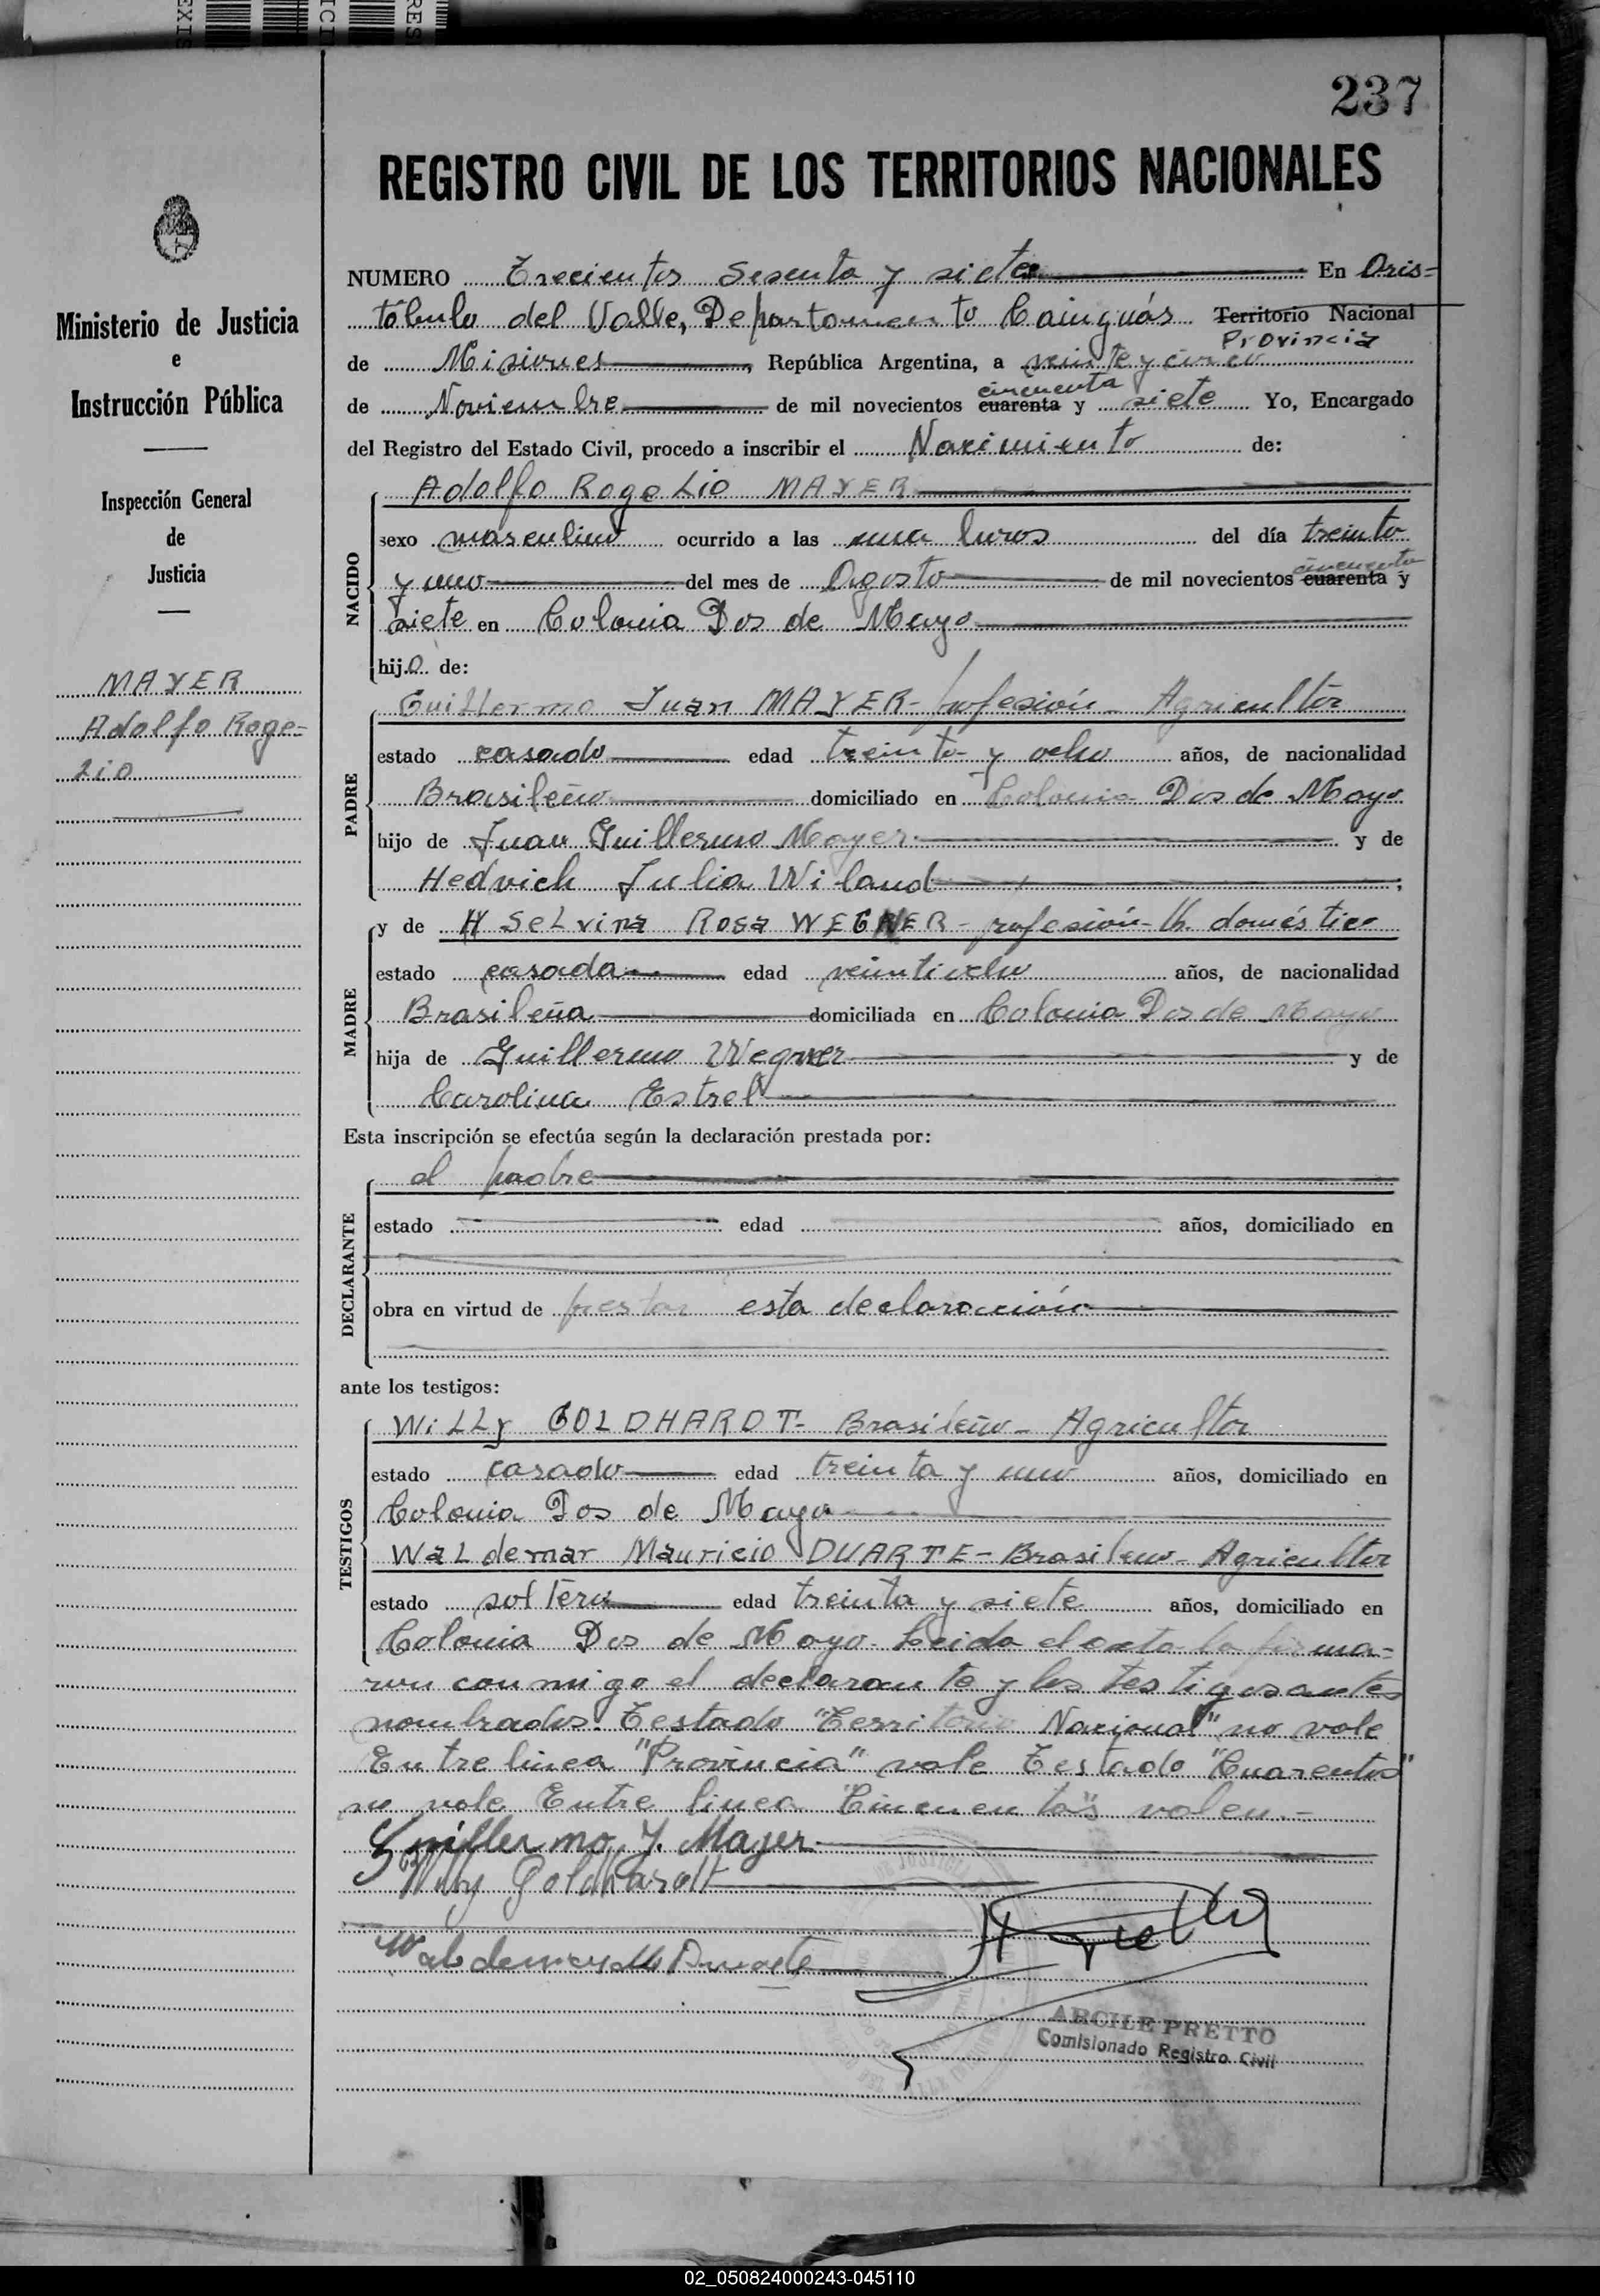 237
REGISTRO CIVIL DE LOS TERRITORIOS NACIONALES
NUMERO Trecientos Sesenta y siete En Aris=
tóbulo del Valle, Departamento Cainguás Territorio Nacional
Provincia
de Misiones, República Argentina, a veinte y cinco
cincuenta
de Noviembre de mil novecientos cuarenta y siete Yo, Encargado
del Registro del Estado Civil, procedo a inscribir el Nacimiento de:
NACIDO
Adolfo Rogelio MAYER
sexo masculino ocurrido a las una horas del día treinta
cincuenta
y uno del mes de Agosto de mil novecientos cuarenta y
siete en Colonia Dos de Mayo
hijo de:
PADRE
Guillermo Juan MAYER- profesión- Agricultor
estado casado edad treinta y ocho años, de nacionalidad
Brasileño domiciliado en Colonia Dos de Mayo
hijo de Juan Guillermo Mayer y de
Hedvich Julia Wiland;
MADRE
y de Selvina Rosa WEGNER- profesión- Q. doméstico
estado casada edad veintiocho años, de nacionalidad
Brasileña domiciliada en Colonia Dos de Mayo
hija de Guillermo Wegner y de
Carolina Estrel
Esta inscripción se efectúa según la declaración prestada por:
DECLARANTE
el padre
estado edad años, domiciliado en
obra en virtud de prestar esta declaración
ante los testigos:
TESTIGOS
Willy GOLDHARDT- Brasileño- Agricultor
estado casado edad treinta y uno años, domiciliado en
Colonia Dos de Mayo
Waldemar Mauricio DUARTE- Brasileno- Agricultor
estado soltero edad treinta y siete años, domiciliado en
Colonia Dos de Mayo. Leida el acta la firma=
ron conmigo el declarante y los testigos antes
nombrados. Testado "Territorio Nacional" no vale
Entre linea "Provincia" vale Testado "Cuarenta"
no vale Entre linea "Cincuenta" valen.-
Guillermo J. Mayer
Willy Goldhardt
Waldemar M Duarte
ARCILE PRETTO
Comisionado Registro Civil
Ministerio de Justicia
e
Instrucción Pública
Inspección General
de
Justicia
MAYER
Adolfo Roge=
lio
02_050824000243-045110